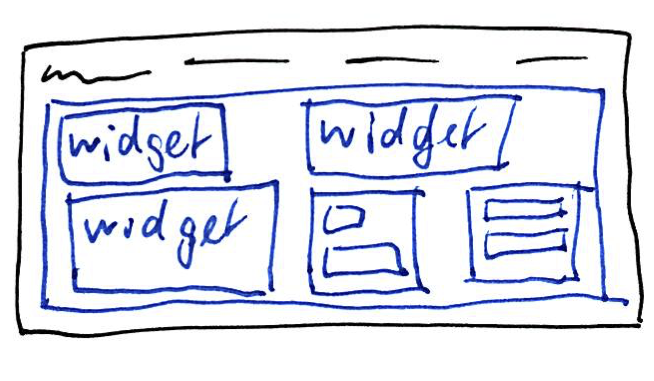 widget widget
widget